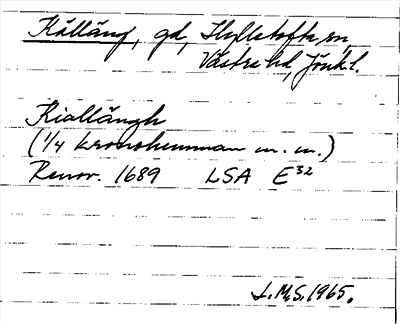 Källäng, gd, Hylletofta sn,
Västra hd, Jönk.l.
Kiällängh
(1/4 kronohemman m.m.)
Renov. 1689 LSA E32
L.M.S. 1965.